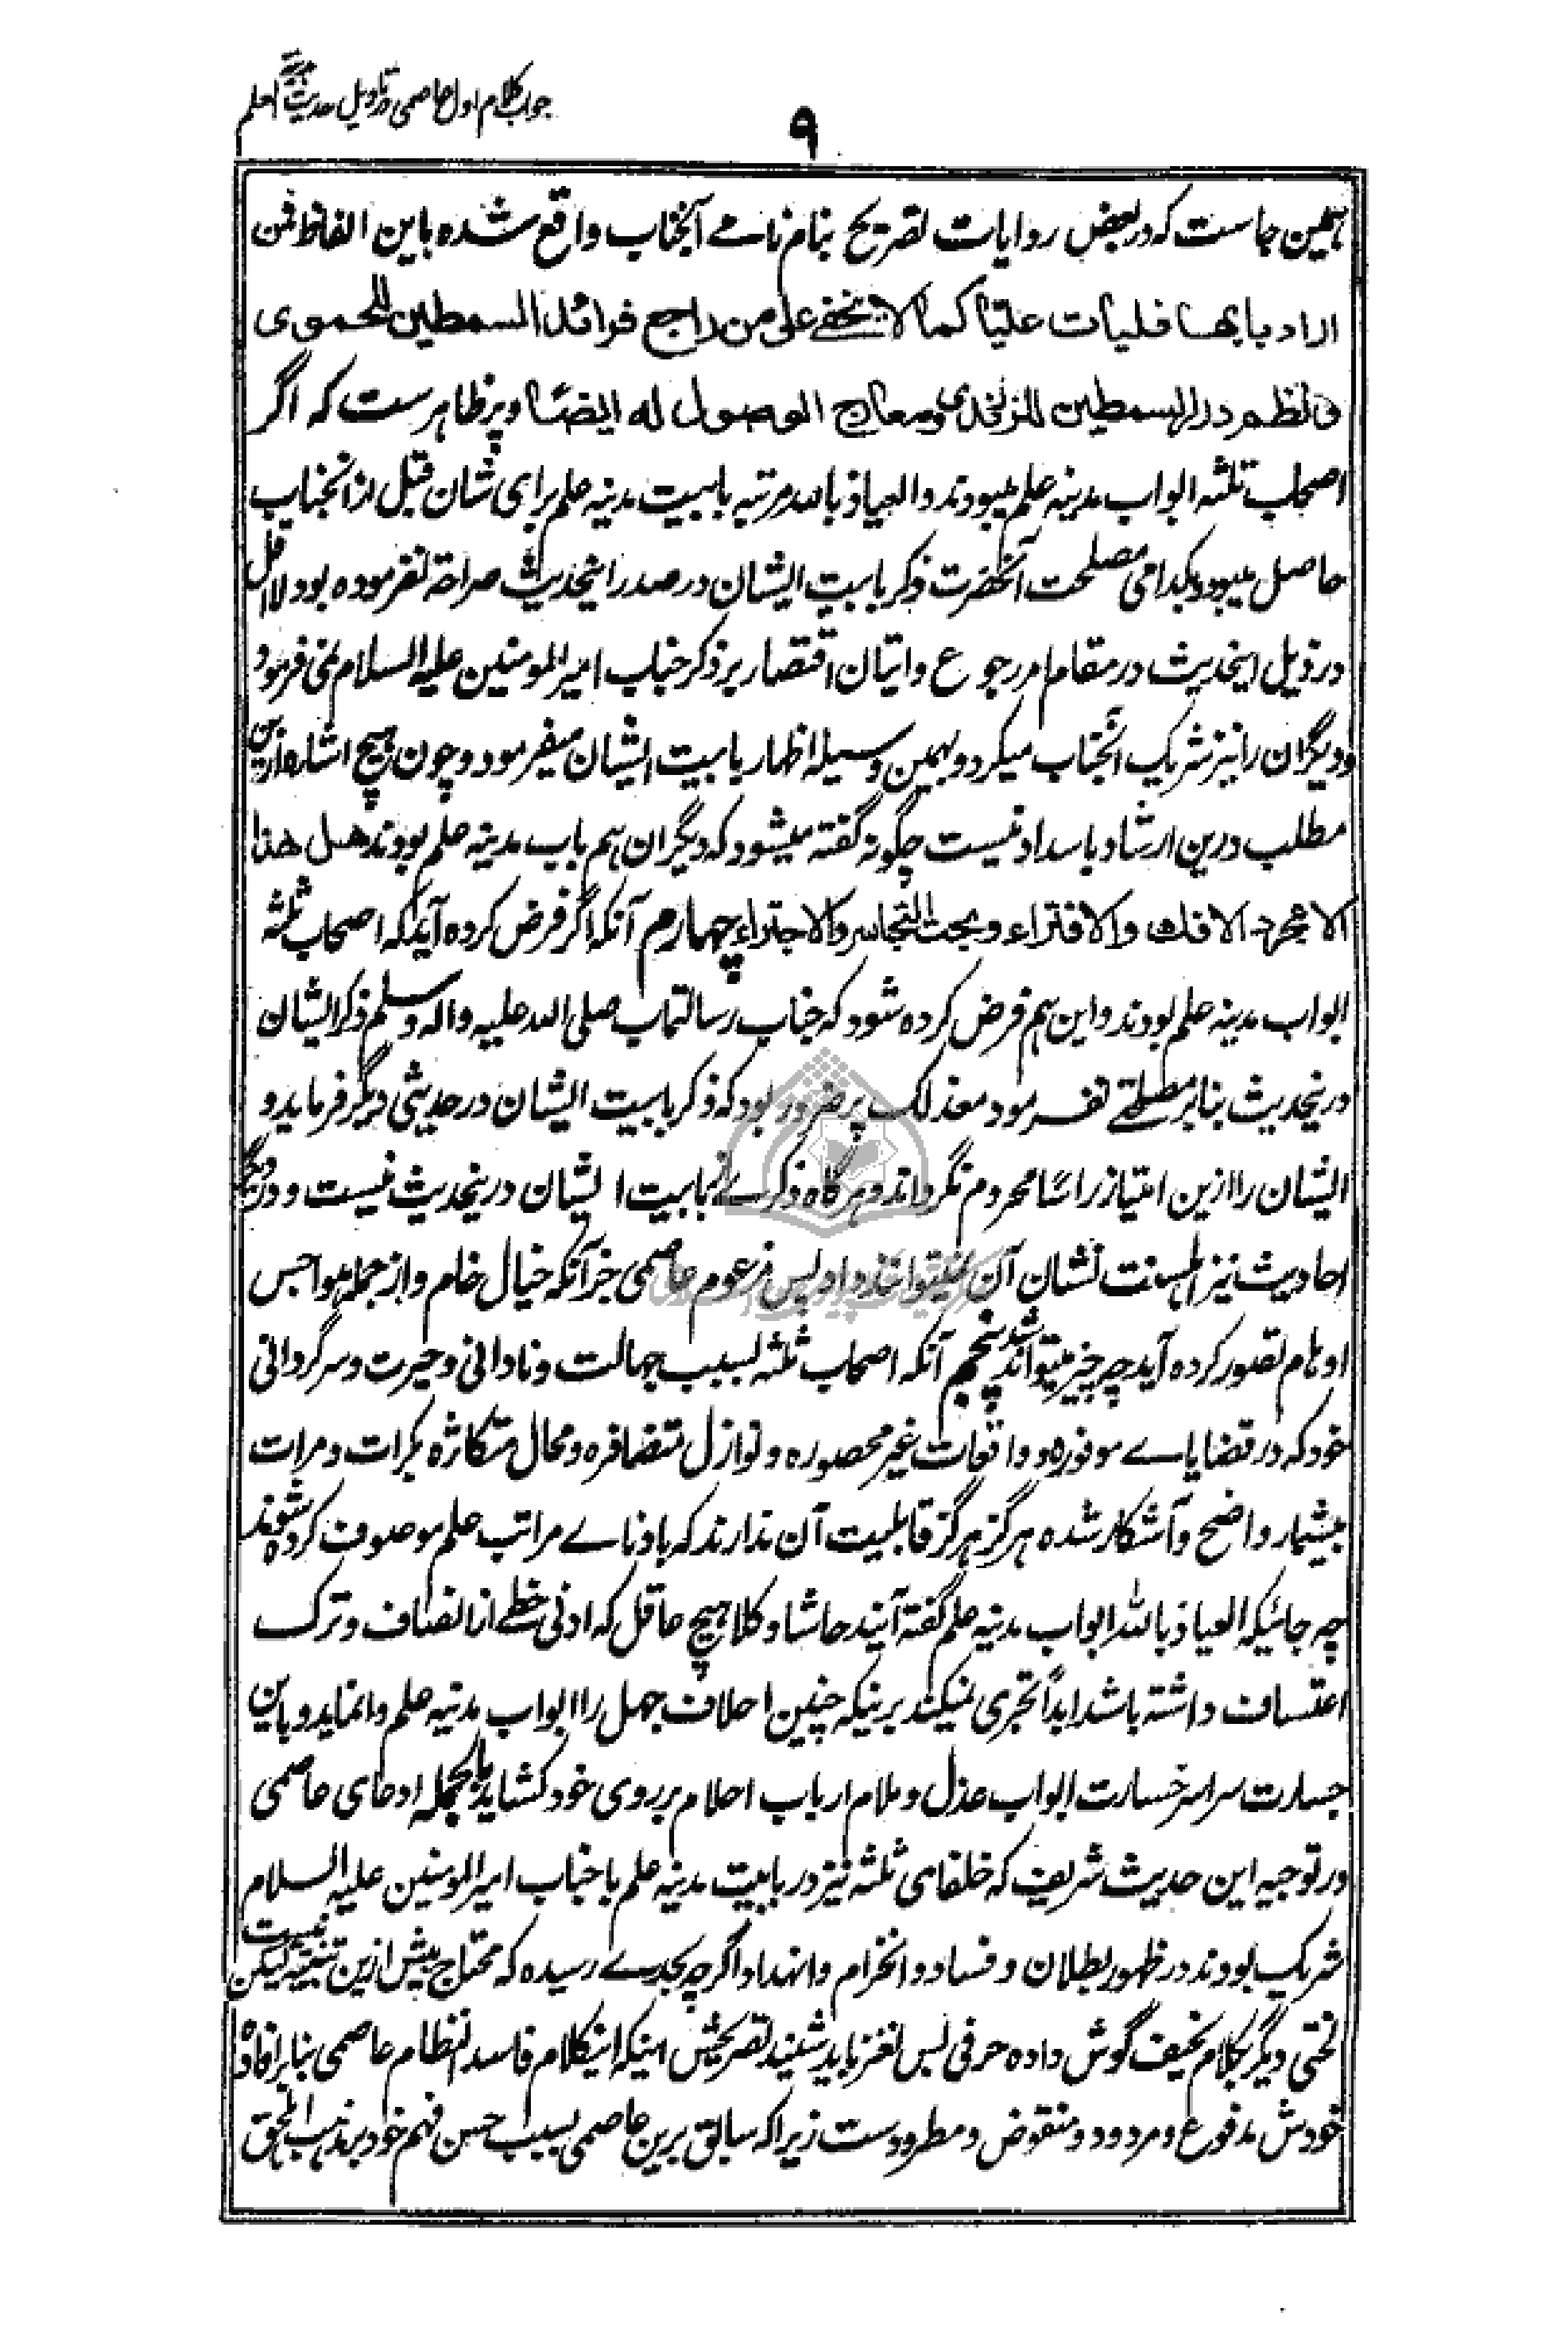 جواب کلام اول عاصمی در تاویل حدیث مدینة العلم
۹
همین جاست که در بعض روایات تصریح بنام نامے آنجناب واقع شده باین الفاظ فمن
اراد بابها فلیات علیّا کما لا یخفے علی من راجع فرائد السمطین للحموی
و نظم درر السمطین للزرندی و معارج الوصول له ایضًا و پر ظاهرست که اگر
اصحاب ثلثه ابواب مدینه علم میبودند و العیاذ بالله مرتبه بابیت مدینه علم برای شان قبل از انجناب
حاصل میبود بکدامی مصلحت آنحضرت ذکر بابیت ایشان در صدر اینحدیث صراحة نفرموده بود لا اقل
در ذیل اینحدیث در مقام امر رجوع و اتیان اقتصار بر ذکر جناب امیر المومنین علیه السلام نمی فرمود
و دیگران را نیز شریک آنجناب میکرد و بهمین وسیله اظهار بابیت ایشان میفرمود و چون هیچ اشاره ازین
مطلب درین ارشاد باسداد نیست چگونه گفته میشود که دیگران هم باب مدینه علم بودند هل هذا
الا مجرد الافک والافتراء و بحت التجاسر والاجتراء چهارم آنکه اگر فرض کرده آید که اصحاب ثلثه
ابواب مدینه علم بودند و این هم فرض کرده شود که جناب رسالتماب صلی الله علیه واله وسلم ذکر ایشان
درینحدیث بنابر مصلحتے نفرمود معذلک پر ضرور بود که ذکر بابیت ایشان در حدیثی دیگر فرماید و
ایشان را ازین امتیاز راسًا محروم نگرداند و هرگاه ذکرے از بابیت ایشان درینحدیث نیست و در دیگر
احادیث نیز اهلسنت نشان آن نمیتوانند داد پس مزعوم عاصمی جز آنکه خیال خام و از جمله هواجس
اوهام تصور کرده آید چه چیز میتواند شد پنجم آنکه اصحاب ثلثه بسبب جهالت و نادانی و حیرت و سرگردانی
خود که در قضایاے موفوره و واقعات غیر محصوره و نوازل متضافره و محال متکاثره بکرات و مرات
بیشمار واضح و آشکار شده هرگز هرگز قابلیت آن ندارند که بادناے مراتب علم موصوف کرده شوند
چه جائیکه العیاذ بالله ابواب مدینه علم گفته آیند حاشا و کلا هیچ عاقل که ادنی حظے از انصاف و ترک
اعتساف داشته باشد ابداً تجری نمیکند برینکه چنین احلاف جهل را ابواب مدینه علم وا نماید و باین
جسارت سراسر خسارت ابواب عذل و ملام ارباب احلام بر روی خود کشاید بالجمله ادعای عاصمی
در توجیه این حدیث شریف که خلفای ثلثه نیز در بابیت مدینه علم با جناب امیر المومنین علیه السلام
شریک بودند در ظهور بطلان و فساد و انخرام و انهداد اگرچه بحدے رسیده که محتاج بیش ازین تنبیه نیست لیکن
لختی دیگر بکلام نحیف گوش داده حرفی بس نغز باید شنید تصریحش اینکه اینکلام فاسد النظام عاصمی بنابر افادهٔ
خودش مدفوع و مردود و منقوض و مطرودست زیرا که سابق برین عاصمی بسبب حسن فهم خود بر مذهب اهل حق